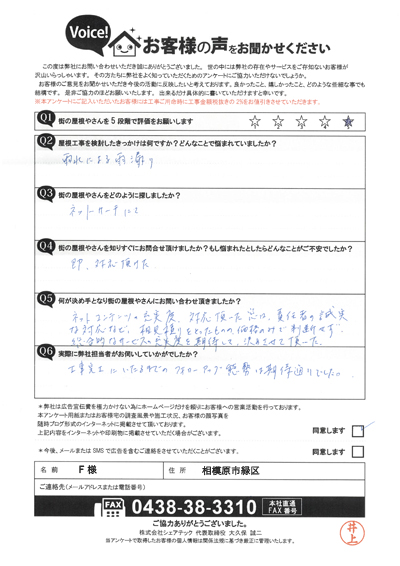 Voice!
お客様の声をお聞かせください
この度は弊社にお問い合わせいただき誠にありがとうございました。世の中には弊社の存在やサービスをご存知ないお客様が
沢山いらっしゃいます。その方たちに弊社をよく知っていただくためのアンケートにご協力いただけないでしょうか。
お客様のご意見をお聞かせいただき今後の活動に反映したいと考えております。良かったこと、嬉しかったこと、どのような些細な事でも
結構です。是非ご協力のほどお願いいたします。出来るだけ具体的に書いていただけますと幸いです。
※本アンケートにご記入いただいたお客様には工事ご用命時に工事金額税抜きの2%をお値引きさせていただきます。
Q1 街の屋根やさんを5段階で評価をお願いします
1 2 3 4 5
Q2 屋根工事を検討したきっかけは何ですか?どんなことで悩まれていましたか?
雨水による雨漏り
Q3 街の屋根やさんをどのように探しましたか?
ネットサーチにて
Q4 街の屋根やさんを知りすぐにお問合せ頂けましたか?もし悩まれたとしたらどんなことがご不安でしたか?
即、対応頂けた
Q5 何が決め手となり街の屋根やさんにお問い合わせ頂きましたか?
ネットコンテンツの充実度、対応頂いた 責任者の誠実
な対応など、相見積りをとったものの価格のみで判断せず、
総合的なサービスの充実度を期待して、決めさせて頂いた。
Q6 実際に弊社担当者がお伺いしていかがでしたか?
工事完工にいたるまでのフォローアップ態勢は期待通りでした。
※弊社は広告宣伝費を極力かけない為にホームページだけを頼りにお客様への営業活動を行っております。
本アンケート用紙またはお客様宅の調査風景や施工状況、お客様の顔写真を
随時ブログ形式のインターネットに掲載させて頂いております。
上記内容をインターネットや印刷物に掲載させていただく場合がございます。
同意します
※今後、メールまたは SMS で広告を含むご連絡をさせていただくことがございます。
同意します
名前 F 様 住所 相模原市緑区
ご連絡先(メールアドレスまたは電話番号)
FAX 0438-38-3310 本社直通 FAX番号
ご協力ありがとうございました。
株式会社シェアテック 代表取締役 大久保 誠二
当アンケートで取得したお客様の個人情報は関係法規に基づき厳正に管理いたします。
井上